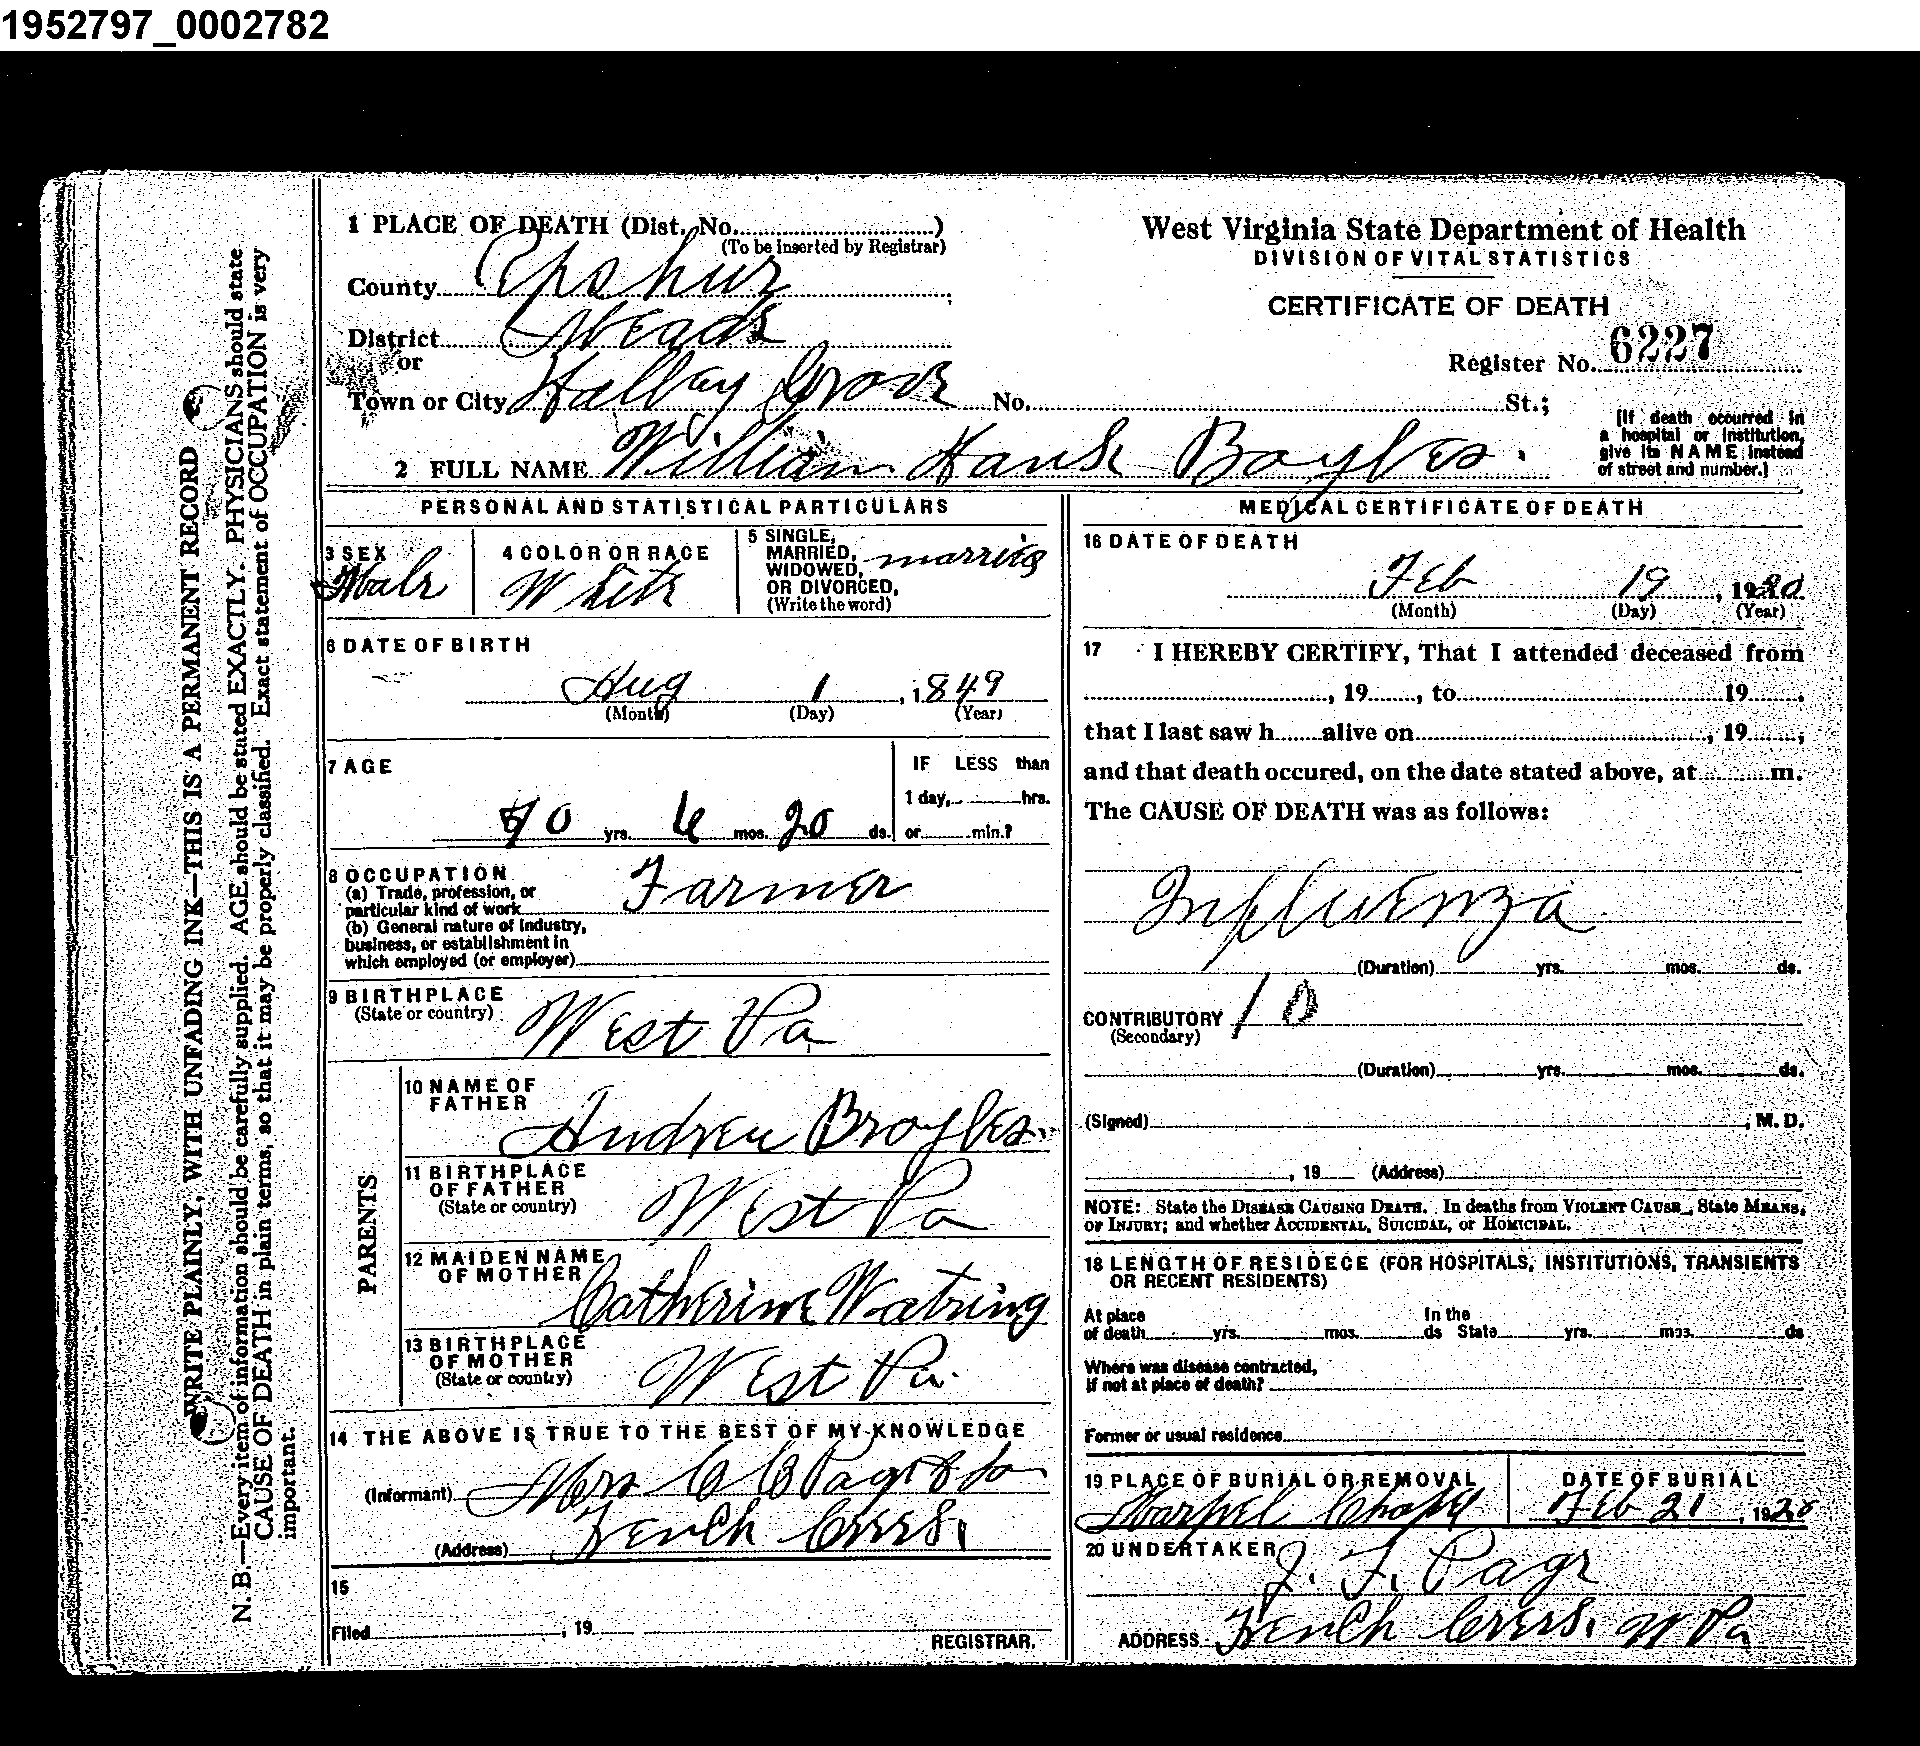 1952797_0002782
1 PLACE OF DEATH (Dist. No. )
(To be inserted by Registrar)
County Upshur
District Meade
or
Town or City Grove No. St.;
[If death occurred in
a hospital or institution,
give its NAME instead
of street and number.]
2 FULL NAME William Boyles.
West Virginia State Department of Health
DIVISION OF VITAL STATISTICS
CERTIFICATE OF DEATH
Register No. 6227
PERSONAL AND STATISTICAL PARTICULARS
3 SEX
Male
4 COLOR OR RACE
White
5 SINGLE,
MARRIED,
WIDOWED,
OR DIVORCED,
(Write the word)
married
6 DATE OF BIRTH
Aug 1, 1849
(Month) (Day) (Year)
7 AGE
70 yrs. 6 mos. 20 ds.
IF LESS than
1 day, hrs.
or min.?
8 OCCUPATION
(a) Trade, profession, or
particular kind of work Farmer
(b) General nature of Industry,
business, or establishment in
which employed (or employer)
9 BIRTHPLACE
(State or country)
West Va
PARENTS
10 NAME OF
FATHER
Andrew Broyles.
11 BIRTHPLACE
OF FATHER
(State or country)
West Va
12 MAIDEN NAME
OF MOTHER
Catherine Watring
13 BIRTHPLACE
OF MOTHER
(State or country)
West Va.
14 THE ABOVE IS TRUE TO THE BEST OF MY KNOWLEDGE
(Informant) Mrs
(Address) French Creek.
15
Filed , 19
REGISTRAR.
MEDICAL CERTIFICATE OF DEATH
16 DATE OF DEATH
Feb 19, 1920
(Month) (Day) (Year)
17 I HEREBY CERTIFY, That I attended deceased from
, 19 , to 19 ,
that I last saw h alive on , 19 ,
and that death occured, on the date stated above, at m.
The CAUSE OF DEATH was as follows:
Influenza
(Duration) yrs. mos. ds.
CONTRIBUTORY 10
(Secondary)
(Duration) yrs. mos. ds.
(Signed) , M. D.
, 19 (Address)
NOTE: State the DISEASE CAUSING DEATH. In deaths from VIOLENT CAUSE, State MEANS,
OF INJURY; and whether ACCIDENTAL, SUICIDAL, or HOMICIDAL.
18 LENGTH OF RESIDECE (FOR HOSPITALS, INSTITUTIONS, TRANSIENTS
OR RECENT RESIDENTS)
At place In the
of death yrs. mos. ds State yrs. mos. ds
Where was disease contracted,
If not at place of death?
Former or usual residence
19 PLACE OF BURIAL OR REMOVAL
Harpel Chapel
DATE OF BURIAL
Feb 21, 1920
20 UNDERTAKER
J. F. Page
ADDRESS French Creek. W Va
WRITE PLAINLY, WITH UNFADING INK—THIS IS A PERMANENT RECORD
N. B.—Every item of information should be carefully supplied. AGE should be stated EXACTLY. PHYSICIANS should state
CAUSE OF DEATH in plain terms, so that it may be properly classified. Exact statement of OCCUPATION is very
important.